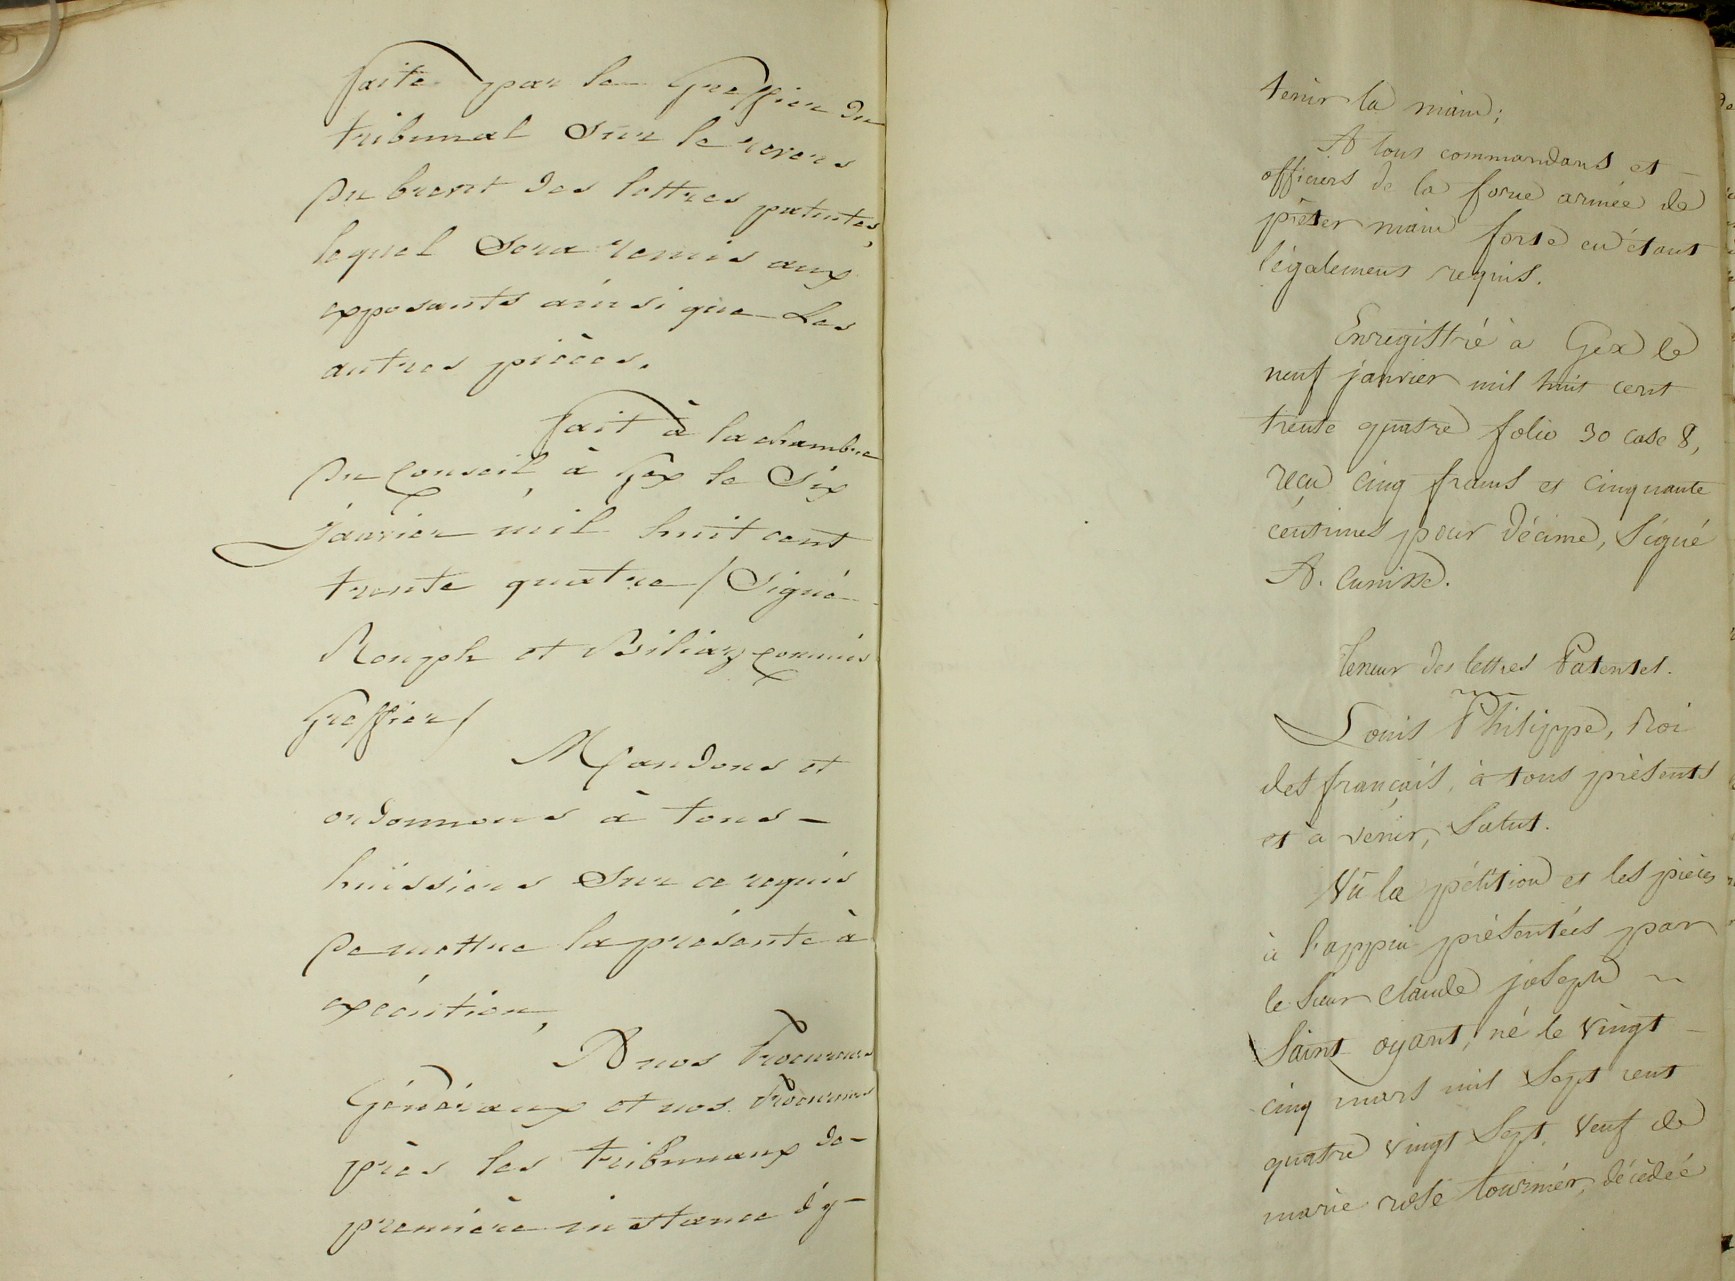 faite par le Greffier du
tribunal sur le revers
du brevet des lettres patentes,
lequel sera remis aux
exposants ainsi que les
autres pièces.
fait à la chambre
du Conseil, à Gex le Six
janvier mil huit cent
trente quatre / Signé
Rouph et commis
Greffier /
Mandons et
ordonnons à tous
huissiers sur ce requis
de mettre la présente à
exécution,
A nos Procureurs
Généraux et nos Procureurs
près les tribunaux de
première instance d'y
tenir la main;
A tous commandans et
officiers de la force armée de
prêter main forte en étant
légalement requis.
Enregistré à Gex le
neuf janvier mil huit cent
trente quatre folio 30 case 8,
reçu cinq francs et cinquante
centimes pour décime, Signé
A.
Teneur des lettres Patentes.
Louis Philippe, Roi
des français, à tous présents
et à venir, Salut.
Vû la pétition et les pièces
à l'appui présentées par
le Sieur Claude joseph
Saint oyant, né le vingt
cinq mars mil Sept cent
quatre vingt Sept, veuf de
marie rose tournier, décédée